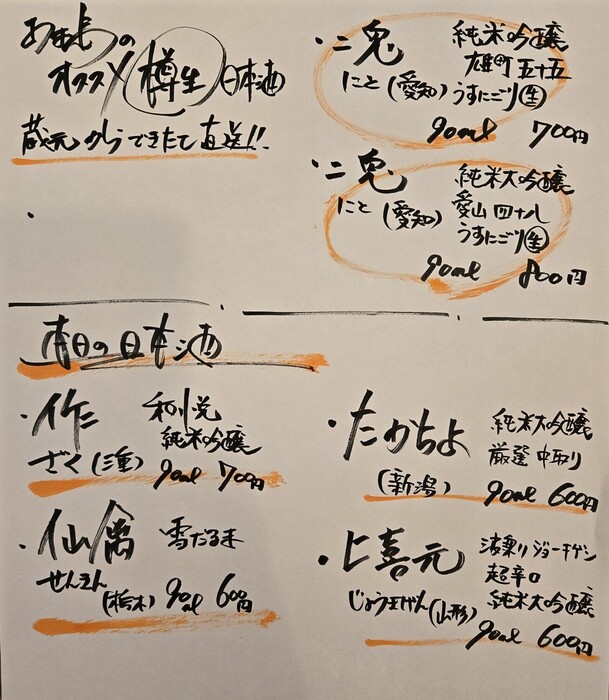 オススメ 樽生 日本酒
蔵元からできたて直送!!
・二兎 純米吟醸
雄町 五十五
にと (愛知) うすにごり 生
90ml 700円
・二兎 純米大吟醸
愛山 四十八
にと (愛知) うすにごり 生
90ml 800円
本日の日本酒
・作
純米吟醸
ざく (三重) 90ml 700円
・仙禽 雪だるま
せんきん (栃木) 90ml 600円
・たかちよ 純米大吟醸
厳選 中取り
(新潟) 90ml 600円
・上喜元 波乗りジョーキゲン
超辛口
じょうきげん (山形) 純米大吟醸
90ml 600円